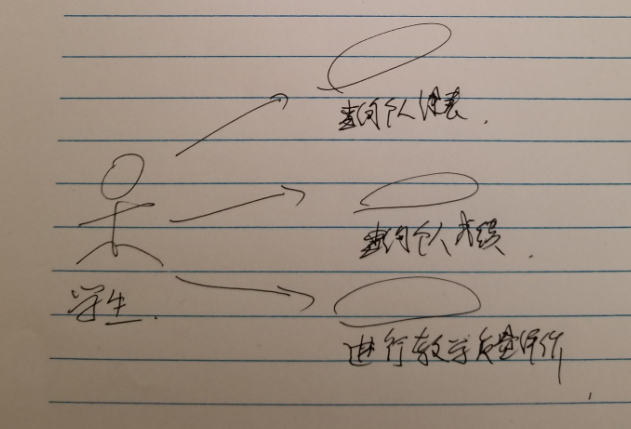 查询个人课表.
查询个人成绩.
学生.
进行教学质量评价